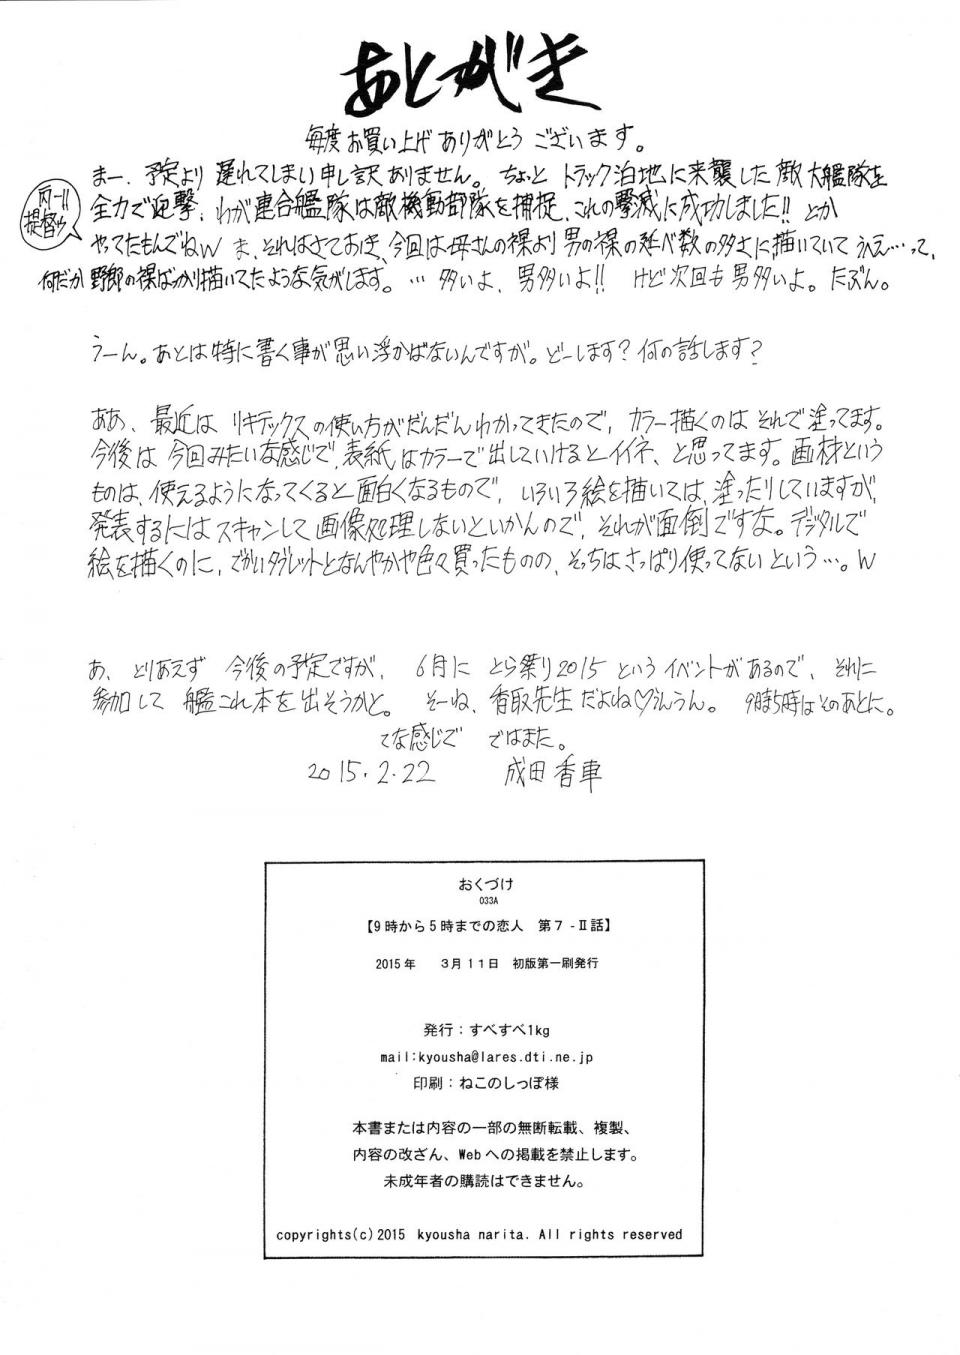 あとがき
毎度お買い上げありがとうございます。
まー、予定より遅れてしまい申し訳ありません。ちょっとトラック泊地に来襲した敵大艦隊を
全力で迎撃、わが連合艦隊は敵機動部隊を捕捉、これの撃滅に成功しました!! とか
提督ゥ
やってたもんでねw ま、それはさておき、今回は母さんの裸より男の裸の延べ数の多さに描いていてうえ…って、
何だか野郎の裸ばっかり描いてたような気がします。… 多いよ、男多いよ!! けど次回も男多いよ。たぶん。
うーん。あとは特に書く事が思い浮かばないんですが。どーします?何の話します?
ああ、最近はリキテックスの使い方がだんだんわかってきたので、カラー描くのはそれで塗ってます。
今後は今回みたいな感じで、表紙はカラーで出していけるとイイネ、と思ってます。画材という
ものは、使えるようになってくると面白くなるもので、いろいろ絵を描いては、塗ったりしていますが、
発表するにはスキャンして画像処理しないといかんので、それが面倒ですな。デジタルで
絵を描くのに、でかいタブレットとなんやかや色々買ったものの、そっちはさっぱり使ってないという…。w
あ、とりあえず今後の予定ですが、6月にとら祭り2015というイベントがあるので、それに
参加して艦これ本を出そうかと。そーね、香取先生だよね♡うんうん。9時5時はそのあとに。
てな感じで ではまた。
2015.2.22 成田香車
おくづけ
033A
【9時から5時までの恋人 第7-Ⅱ話】
2015年 3月11日 初版第一刷発行
発行:すべすべ1kg
mail:kyousha@lares.dti.ne.jp
印刷:ねこのしっぽ様
本書または内容の一部の無断転載、複製、
内容の改ざん、Webへの掲載を禁止します。
未成年者の購読はできません。
copyrights(c)2015 kyousha narita. All rights reserved